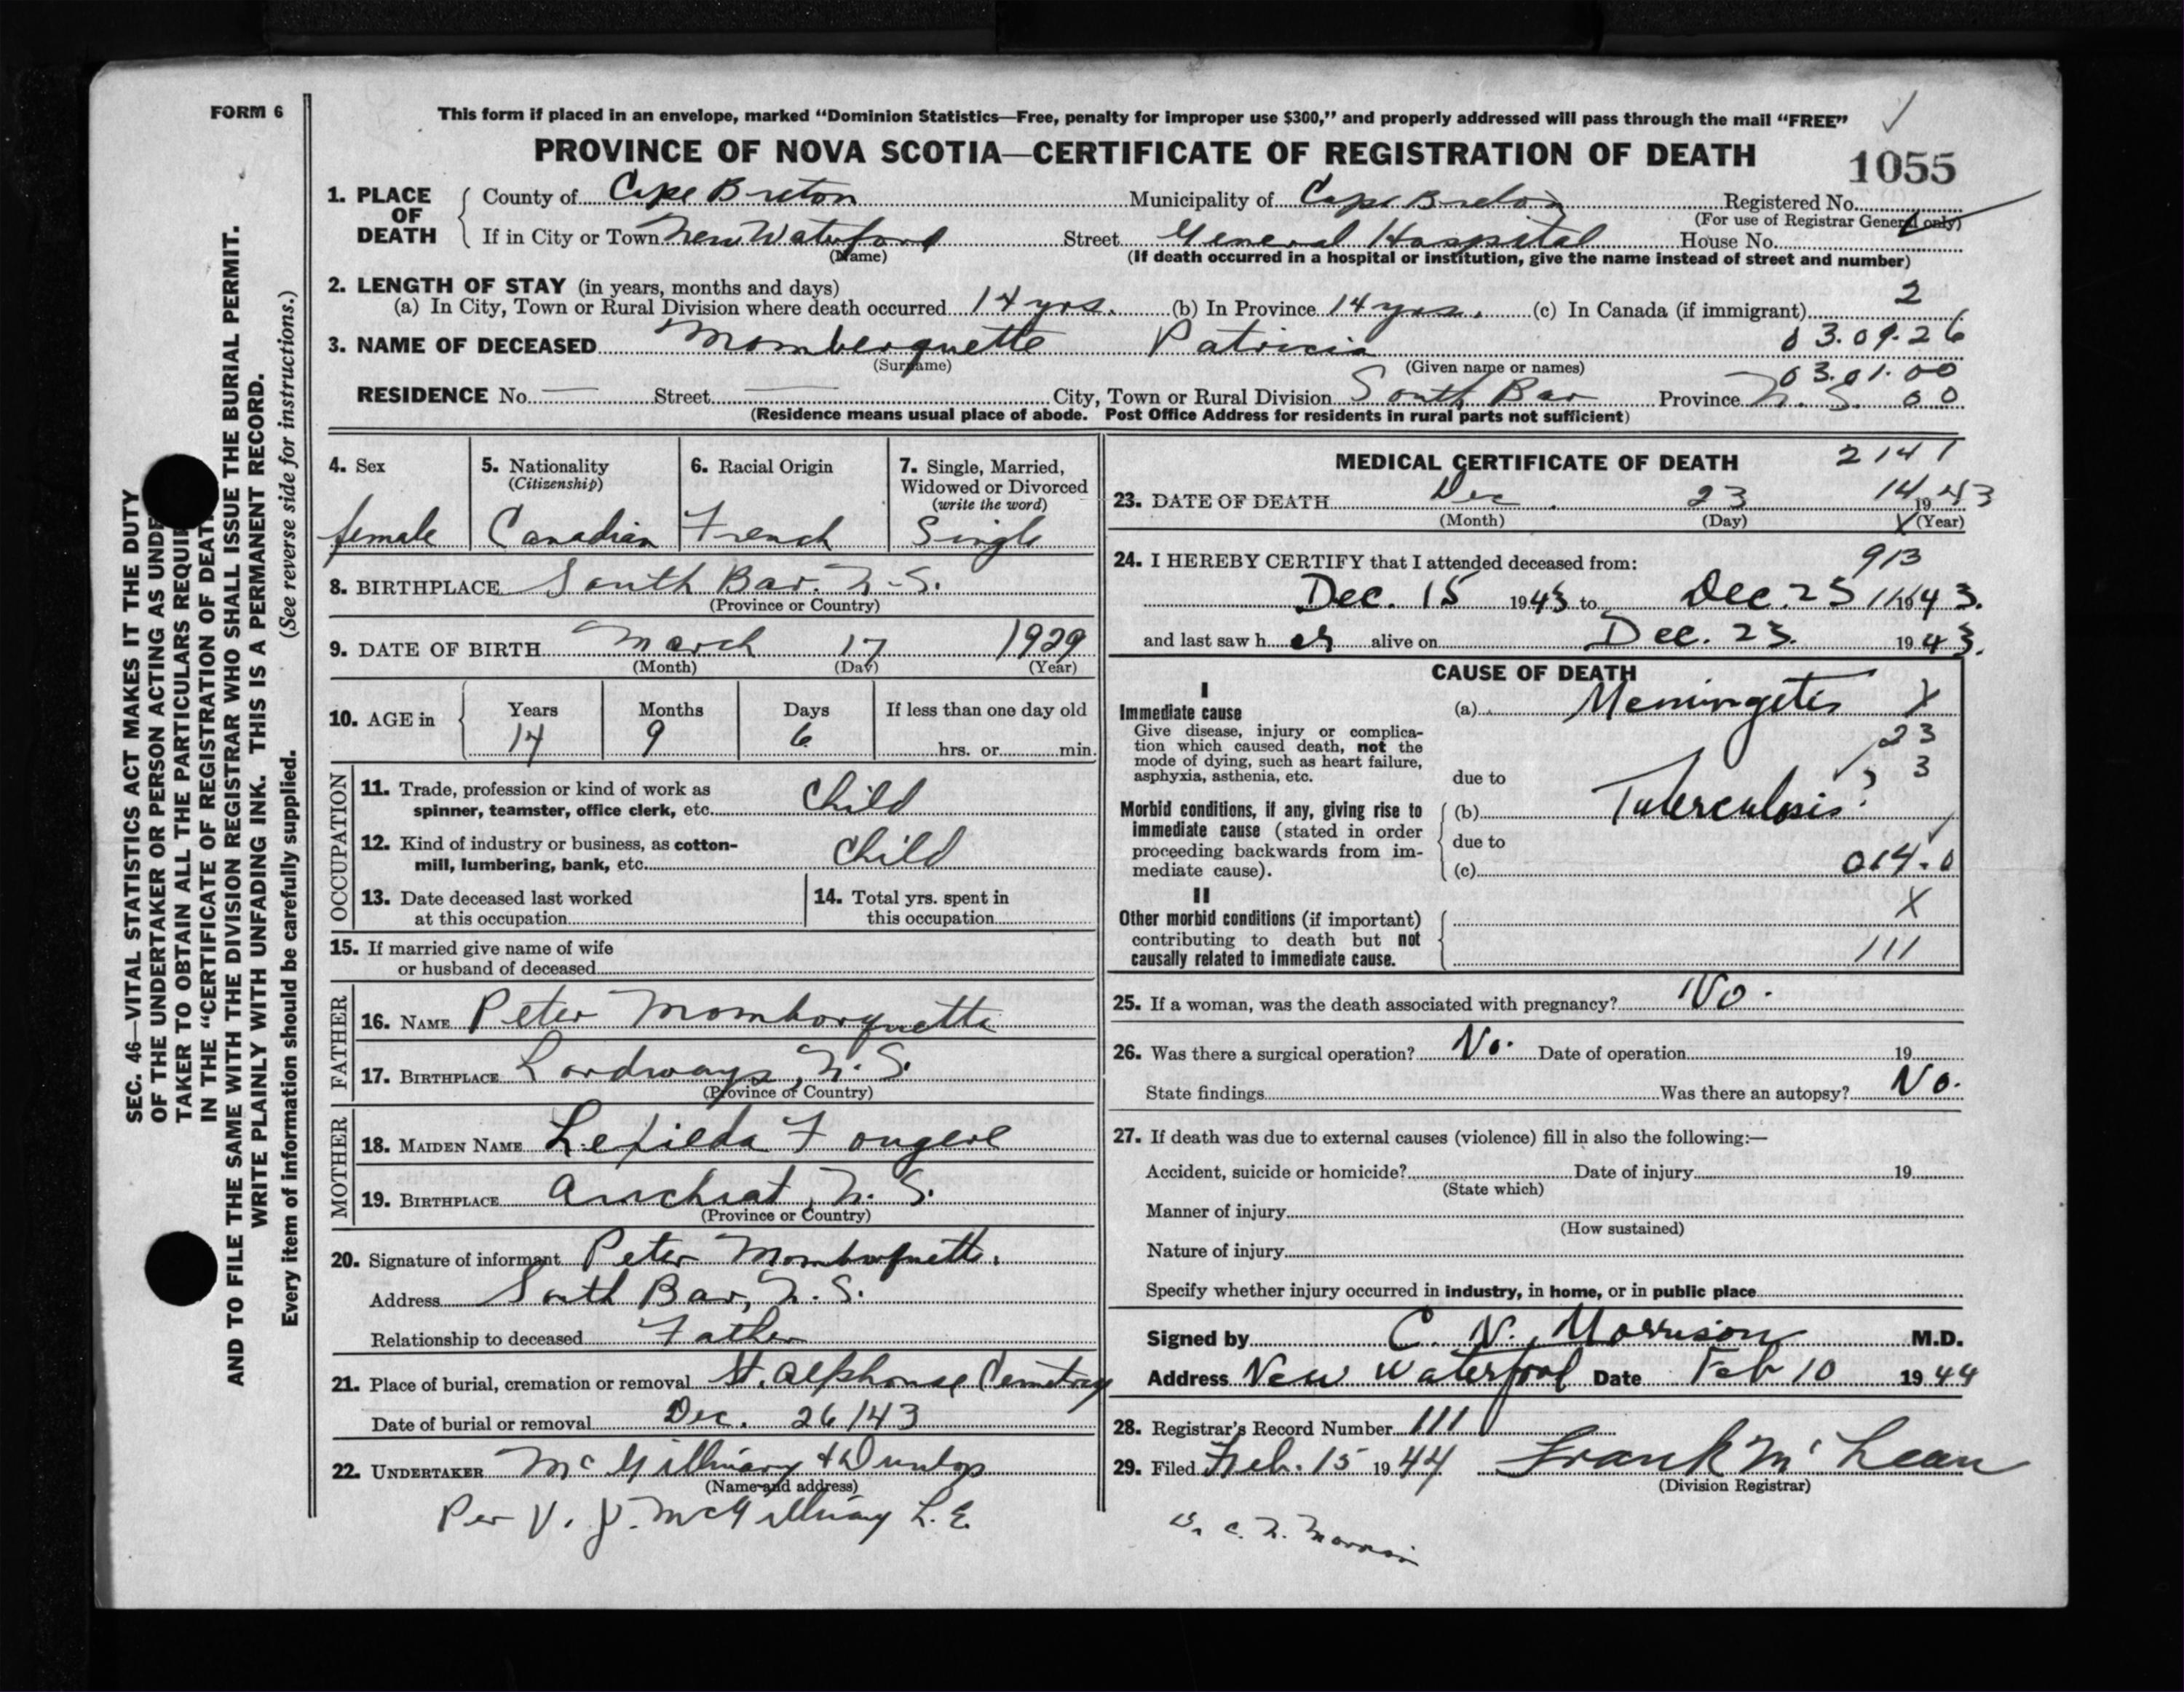 FORM 6
This form if placed in an envelope, marked “Dominion Statistics—Free, penalty for improper use $300,” and properly addressed will pass through the mail “FREE”
PROVINCE OF NOVA SCOTIA—CERTIFICATE OF REGISTRATION OF DEATH
1055
1. PLACE OF DEATH
County of Cape Breton Municipality of Cape Breton Registered No.
(For use of Registrar General only)
If in City or Town New Waterford Street General Hospital House No.
(Name) (If death occurred in a hospital or institution, give the name instead of street and number)
2. LENGTH OF STAY (in years, months and days)
(a) In City, Town or Rural Division where death occurred 14 yrs. (b) In Province 14 yrs. (c) In Canada (if immigrant) 2
3. NAME OF DECEASED Momberquette Patricia 03.09.26
(Surname) (Given name or names)
03.01.00
RESIDENCE No. — Street — City, Town or Rural Division South Bar Province N. S. 00
(Residence means usual place of abode. Post Office Address for residents in rural parts not sufficient)
4. Sex
female
5. Nationality
(Citizenship)
Canadian
6. Racial Origin
French
7. Single, Married,
Widowed or Divorced
(write the word)
Single
8. BIRTHPLACE South Bar. N.S.
(Province or Country)
9. DATE OF BIRTH March 17 1929
(Month) (Day) (Year)
10. AGE in Years Months Days If less than one day old
14 9 6 hrs. or min.
OCCUPATION
11. Trade, profession or kind of work as
spinner, teamster, office clerk, etc. Child
12. Kind of industry or business, as cotton-
mill, lumbering, bank, etc. Child
13. Date deceased last worked
at this occupation
14. Total yrs. spent in
this occupation
15. If married give name of wife
or husband of deceased
FATHER
16. NAME Peter Momborquette
17. BIRTHPLACE Lordways, N. S.
(Province or Country)
MOTHER
18. MAIDEN NAME Lexilda Fougere
19. BIRTHPLACE Arichat, N. S.
(Province or Country)
20. Signature of informant Peter Momborquette.
Address South Bar, N. S.
Relationship to deceased Father
21. Place of burial, cremation or removal St. Alphonse Cemetery
Date of burial or removal Dec. 26/43
22. UNDERTAKER McGillivary & Dunlop
(Name and address)
Per V. J. McGillivary L. E.
MEDICAL CERTIFICATE OF DEATH
2141
23. DATE OF DEATH Dec. 23 1943
14
(Month) (Day) (Year)
X
24. I HEREBY CERTIFY that I attended deceased from:
913
Dec. 15 1943 to Dec. 23 1943.
and last saw her alive on Dec. 23. 1943.
CAUSE OF DEATH
I
Immediate cause
Give disease, injury or complica-
tion which caused death, not the
mode of dying, such as heart failure,
asphyxia, asthenia, etc.
(a) Meningetis X
23
3
due to
Morbid conditions, if any, giving rise to
immediate cause (stated in order
proceeding backwards from im-
mediate cause).
(b) Tuberculosis?
due to
(c) 014.0
II
X
Other morbid conditions (if important)
contributing to death but not
causally related to immediate cause.
111
25. If a woman, was the death associated with pregnancy? No.
26. Was there a surgical operation? No. Date of operation 19
State findings Was there an autopsy? No.
27. If death was due to external causes (violence) fill in also the following:—
Accident, suicide or homicide? Date of injury 19
(State which)
Manner of injury
(How sustained)
Nature of injury
Specify whether injury occurred in industry, in home, or in public place
Signed by C. N. Morrison M.D.
Address New Waterford Date Feb 10 1944
28. Registrar's Record Number 111
29. Filed Feb. 15 1944 Frank McLean
(Division Registrar)
Dr C. N. Morrison
SEC. 46—VITAL STATISTICS ACT MAKES IT THE DUTY
OF THE UNDERTAKER OR PERSON ACTING AS UNDE
TAKER TO OBTAIN ALL THE PARTICULARS REQUI
IN THE “CERTIFICATE OF REGISTRATION OF DEAT
AND TO FILE THE SAME WITH THE DIVISION REGISTRAR WHO SHALL ISSUE THE BURIAL PERMIT.
WRITE PLAINLY WITH UNFADING INK. THIS IS A PERMANENT RECORD.
Every item of information should be carefully supplied. (See reverse side for instructions.)